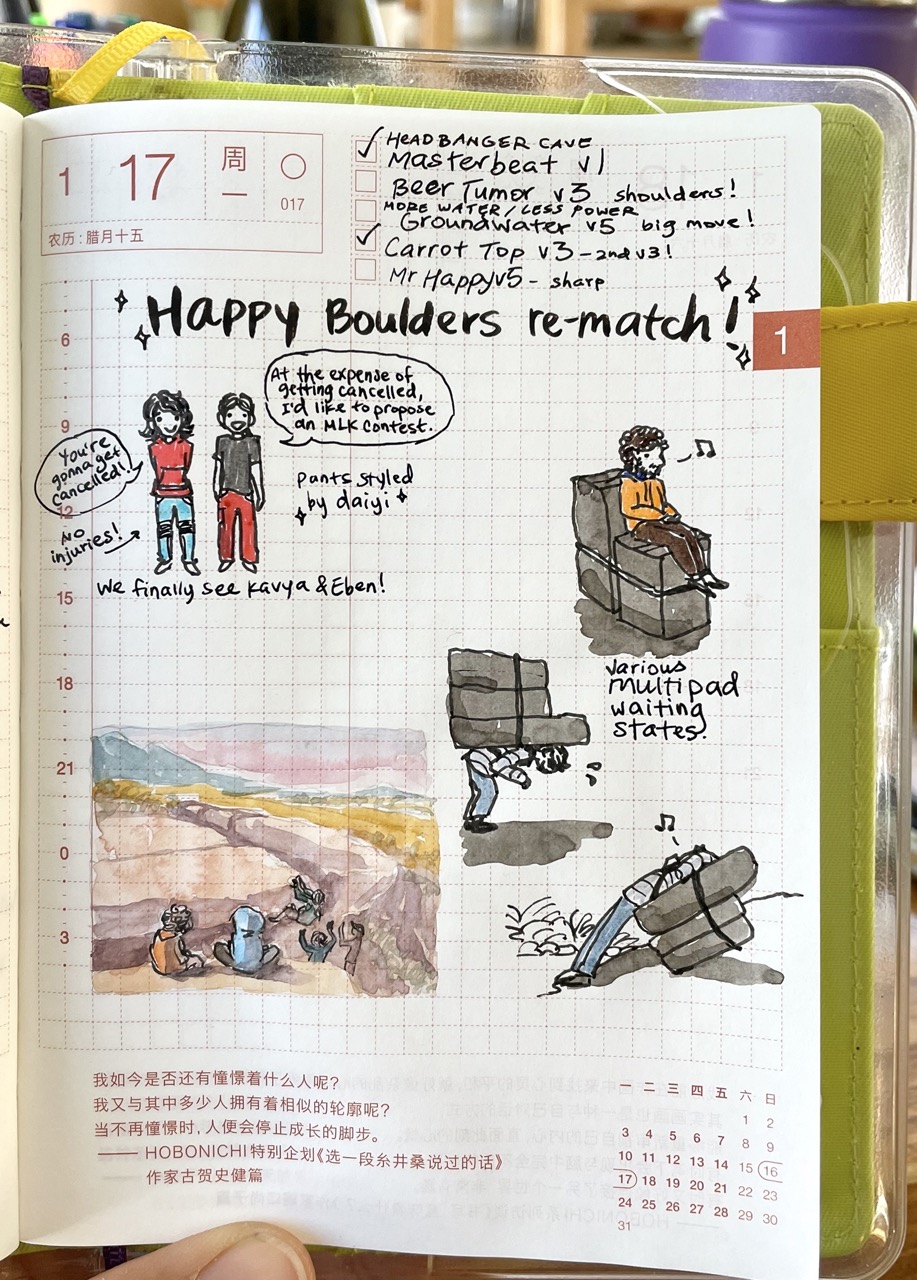 1 17 周一 017
农历：腊月十五
HEADBANGER CAVE
Masterbeat v1
Beer Tumor v3 shoulders!
MORE WATER/LESS POWER
Groundwater v5 big move!
Carrot Top v3 - 2nd v3!
Mr Happy v5 - sharp
Happy Boulders re-match!
1
At the expense of
getting cancelled,
I'd like to propose
an MLK contest.
You're
gonna get
cancelled!
Pants styled
by daiyi
NO
injuries!
We finally see Kavya & Eben!
various
multipad
waiting
states.
6
9
12
15
18
21
0
3
我如今是否还有憧憬着什么人呢？
我又与其中多少人拥有着相似的轮廓呢？
当不再憧憬时，人便会停止成长的脚步。
—— HOBONICHI特别企划《选一段糸井桑说过的话》
作家古贺史健篇
一 二 三 四 五 六 日
1 2
3 4 5 6 7 8 9
10 11 12 13 14 15 16
17 18 19 20 21 22 23
24 25 26 27 28 29 30
31